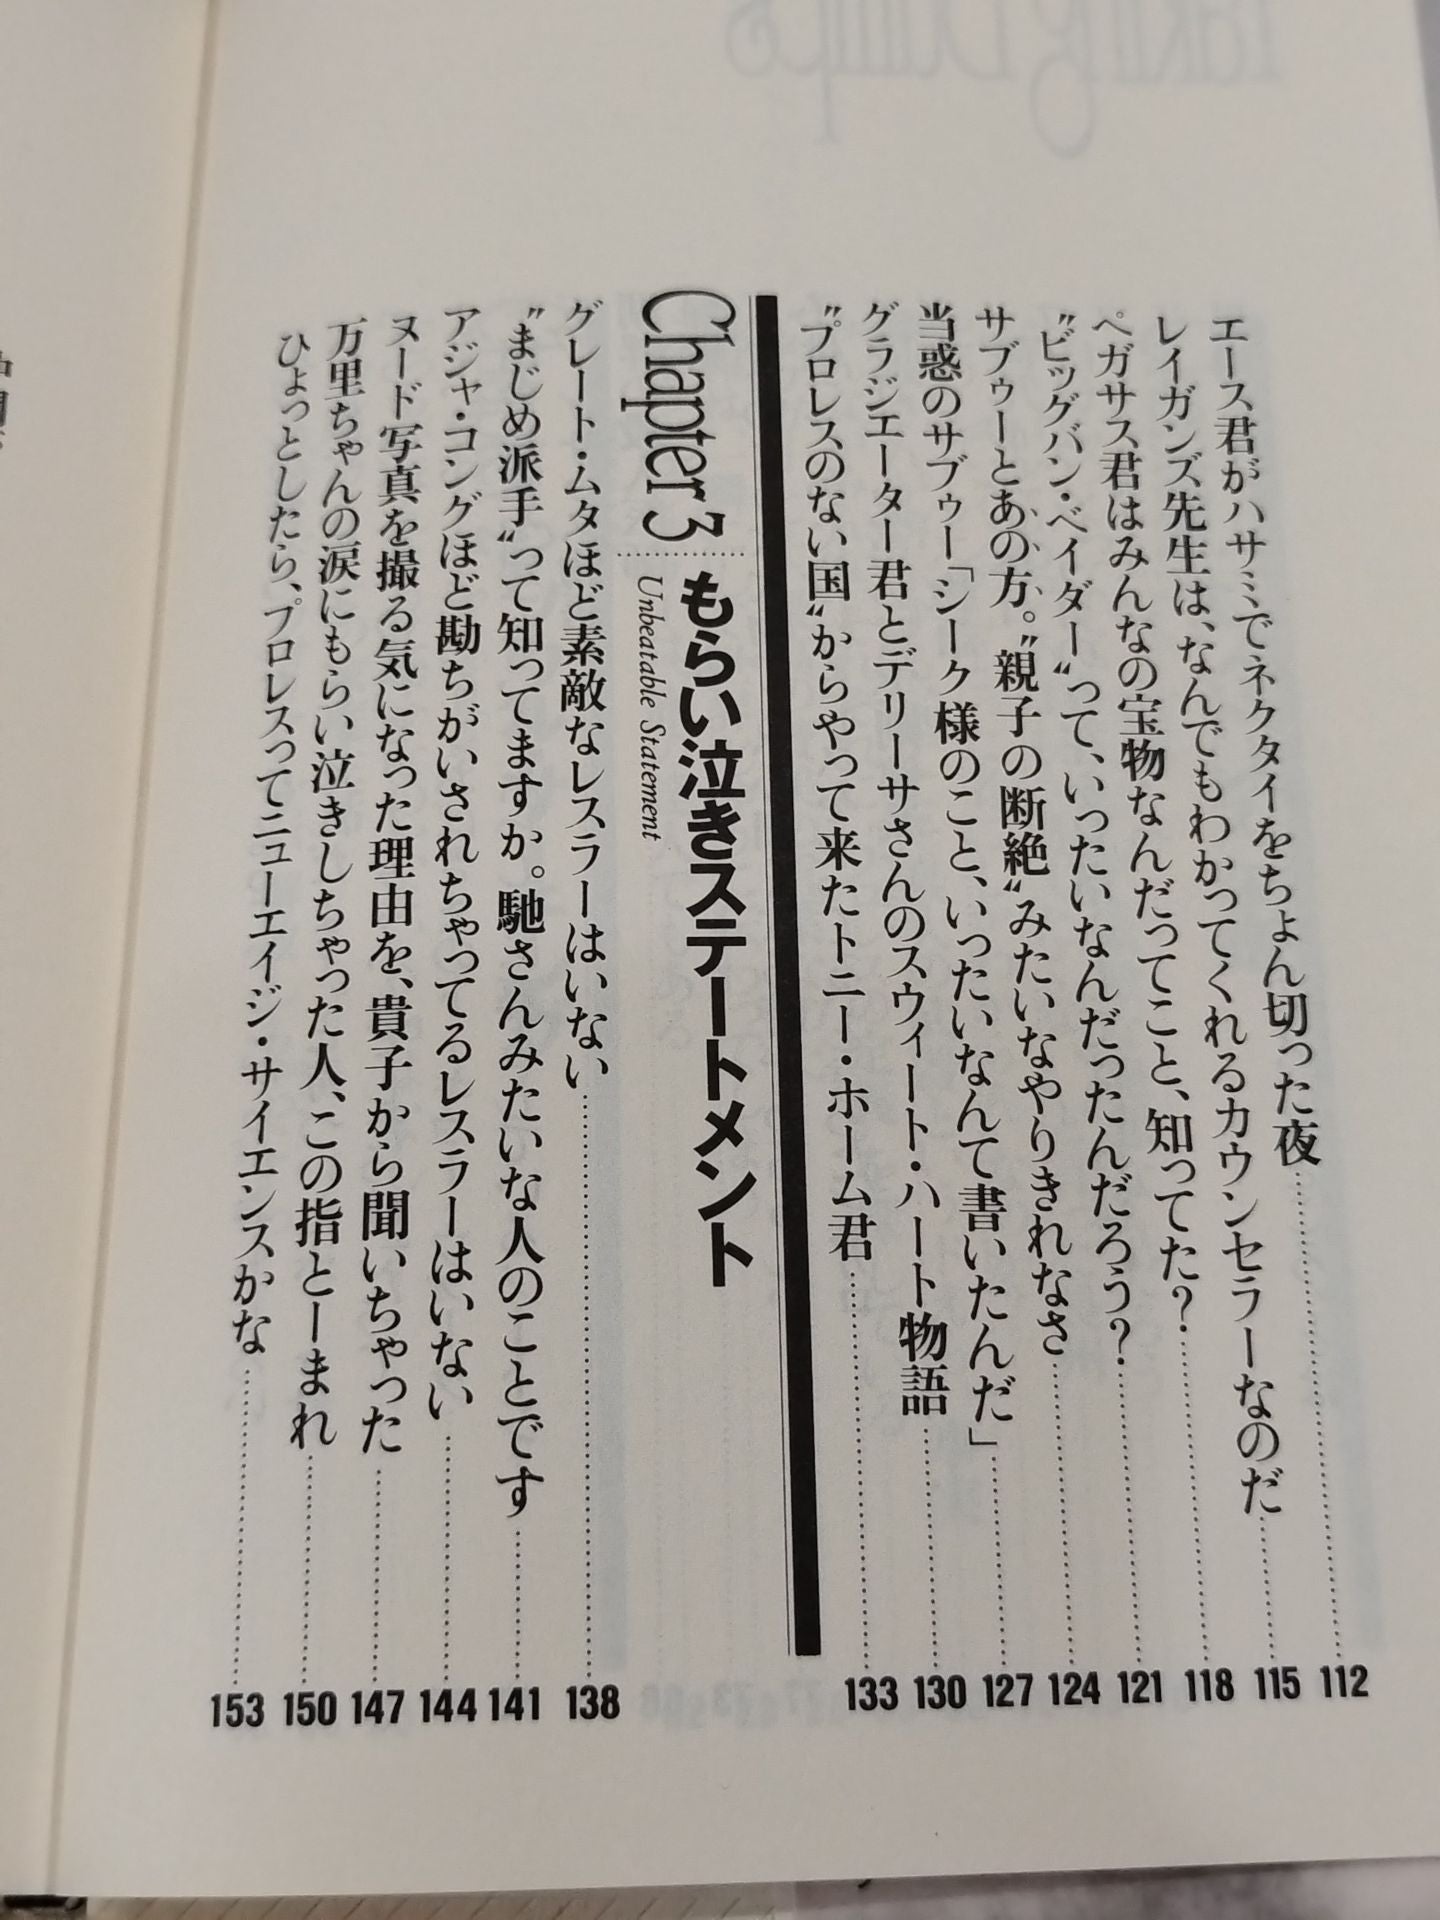 エース君がハサミでネクタイをちょん切った夜 112
レイガンズ先生は、なんでもわかってくれるカウンセラーなのだ 115
ペガサス君はみんなの宝物なんだってこと、知ってた? 118
〝ビッグバン・ベイダー〟って、いったいなんだったんだろう? 121
サブゥーとあの方。〝親子の断絶〟みたいなやりきれなさ 124
当惑のサブゥー「シーク様のこと、いったいなんて書いたんだ」 127
グラジエーター君とデリーサさんのスウィート・ハート物語 130
〝プロレスのない国〟からやって来たトニー・ホーム君 133
Chapter 3 もらい泣きステートメント
Unbeatable Statement
グレート・ムタほど素敵なレスラーはいない 138
〝まじめ派手〟って知ってますか。馳さんみたいな人のことです 141
アジャ・コングほど勘ちがいされちゃってるレスラーはいない 144
ヌード写真を撮る気になった理由を、貴子から聞いちゃった 147
万里ちゃんの涙にもらい泣きしちゃった人、この指とーまれ 150
ひょっとしたら、プロレスってニューエイジ・サイエンスかな 153